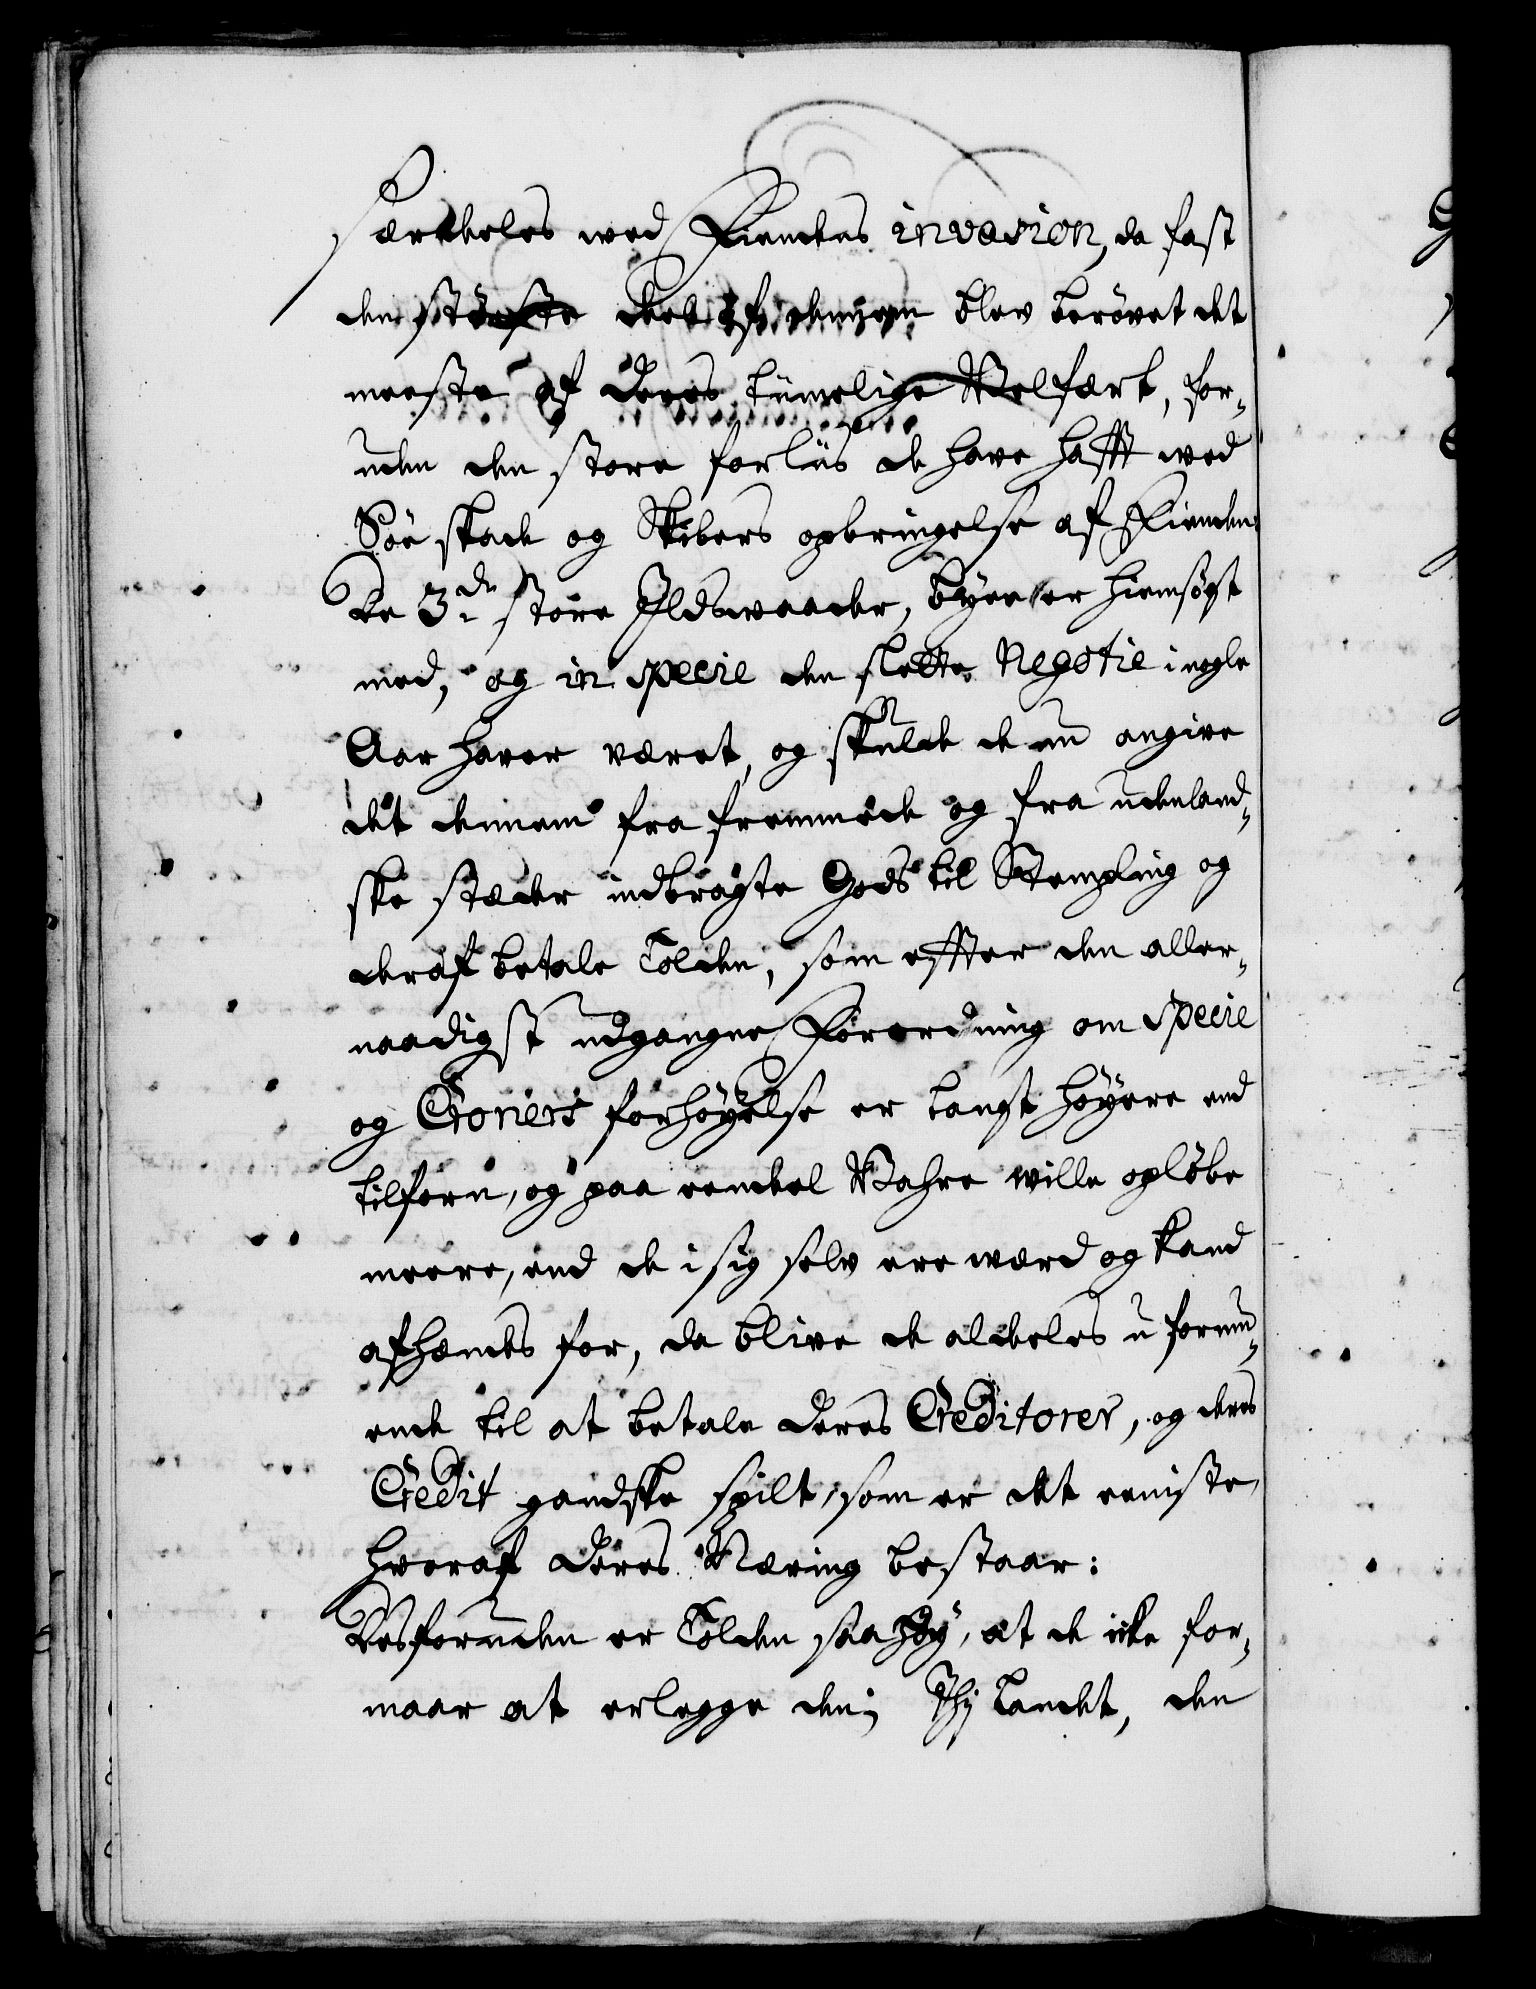 særdeles wed Fiendens invasion, da fast
den störste deel af dennem blev berövet det
meeste af deres timelige Welfært, for-
uden den store forliis de have hafft wed
Söe skade og Skibers opbringelse af Fienden:
De 3de store Ildswaader, byen er hiemsögt
med, og in specie den slette Negotie i nogle
Aar haver været, og skulde de nu angive
det dennem fra fremmede og fra udenland-
ske stæder indbragte Gods til Stempling og
deraf betale Tolden, som effter den aller-
naadigst udgangne Forordning om specie
og Croners forhöyelse er langt höyere end
tilforn, og paa eendeel Wahre wille oplöbe
meere, end de i sig selv ere wærd og kand
afhændes for, da blive de aldeles u formu-
ende til at betale deres Creditorer, og deres
Credit gandske spilt, som er det eeniste
hvoraf deres Næring bestaar:
Desforuden er Tolden saa höy, at de icke for-
maar at erlegge den; Thj Landet, den